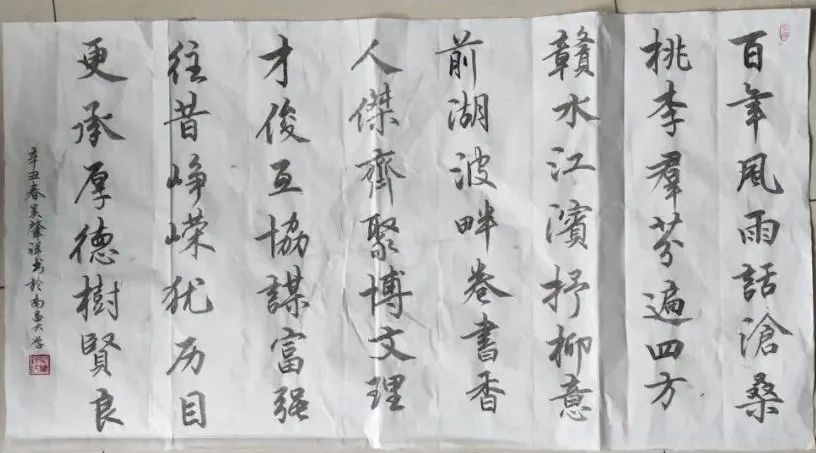 百年風雨話滄桑
桃李羣芬遍四方
贛水江濱抒柳意
前湖波畔卷書香
人傑齊聚博文理
才俊互協謀富强
往昔崢嶸犹历目
更承厚德樹賢良
辛丑春吴肇祥书於南昌大学